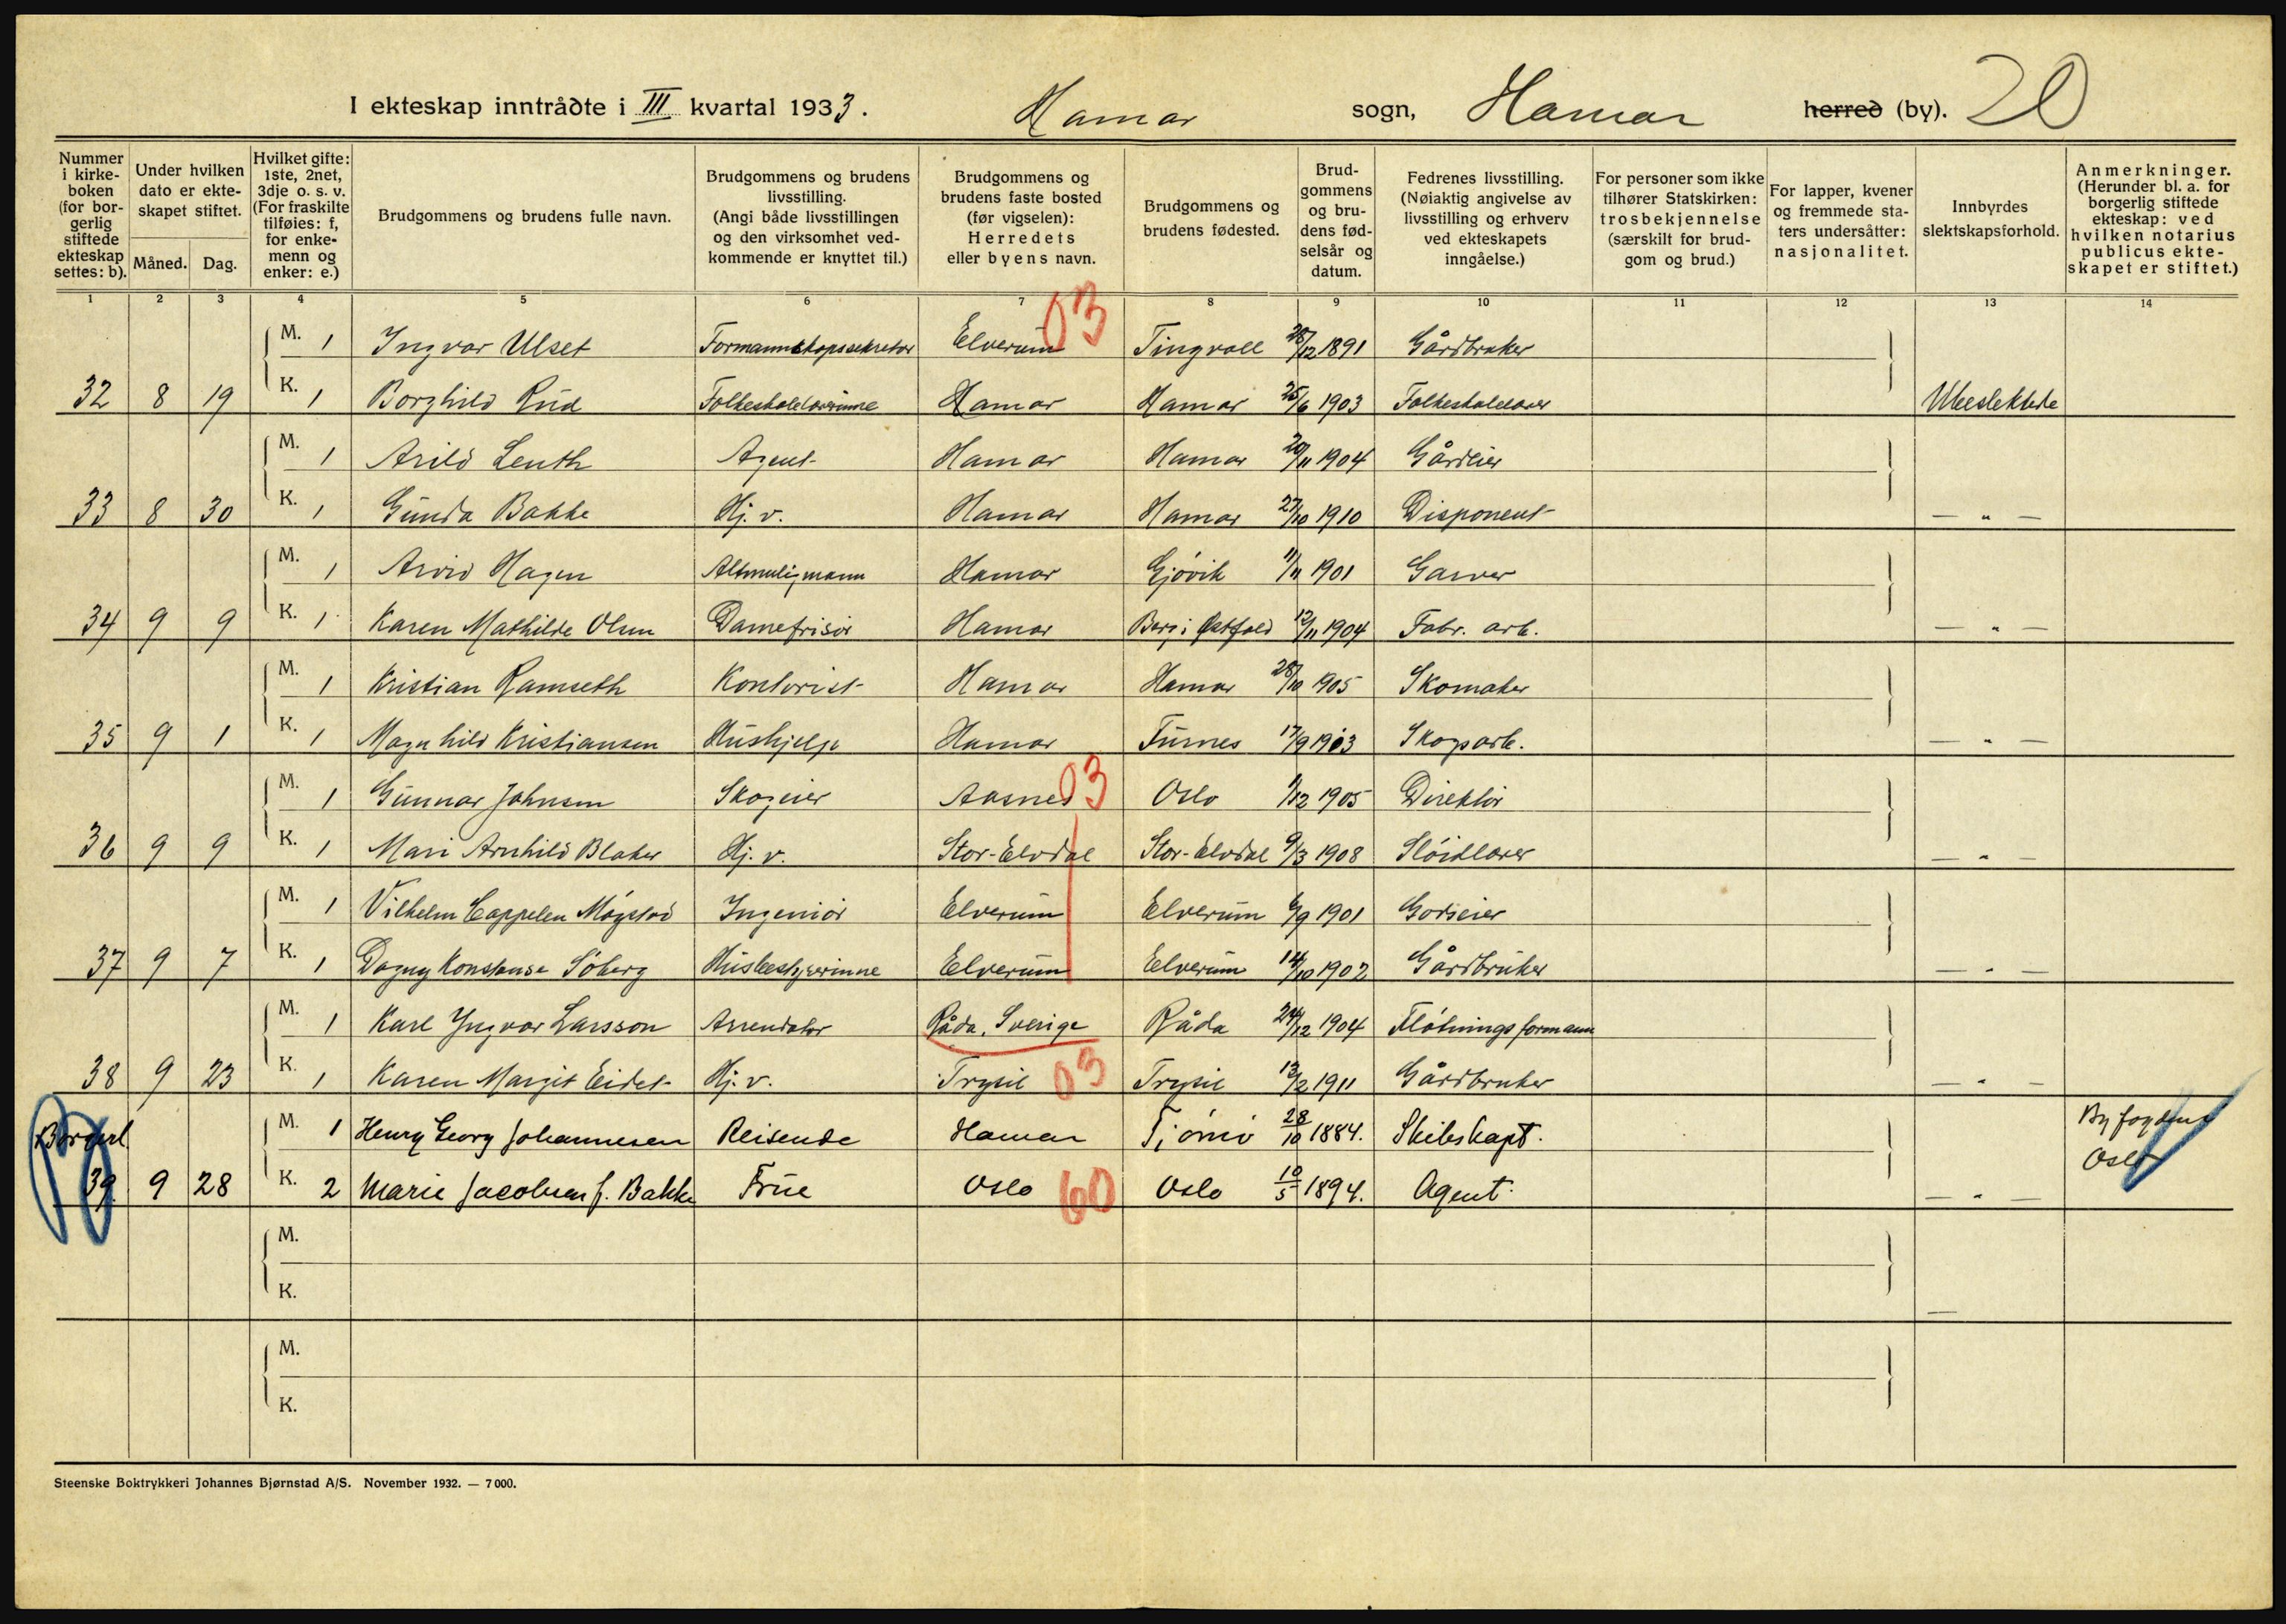 I ekteskap inntrådte i III kvartal 1933. Hamar sogn, Hamar herred (by). 20
Nummer i kirkeboken (for borgerlig stiftede ekteskap settes: b).
Under hvilken dato er ekteskapet stiftet.
Måned. Dag.
Hvilket gifte: 1ste, 2net, 3dje o. s. v. (For fraskilte tilføies: f, for enkemenn og enker: e.)
Brudgommens og brudens fulle navn.
Brudgommens og brudens livsstilling. (Angi både livsstillingen og den virksomhet vedkommende er knyttet til.)
Brudgommens og brudens faste bosted (før vigselen): Herredets eller byens navn.
Brudgommens og brudens fødested.
Brudgommens og brudens fødselsår og datum.
Fedrenes livsstilling. (Nøiaktig angivelse av livsstilling og erhverv ved ekteskapets inngåelse.)
For personer som ikke tilhører Statskirken: trosbekjennelse (særskilt for brudgom og brud.)
For lapper, kvener og fremmede staters undersåtter: nasjonalitet.
Innbyrdes slektskapsforhold.
Anmerkninger. (Herunder bl. a. for borgerlig stiftede ekteskap: ved hvilken notarius publicus ekteskapet er stiftet.)
1 2 3 4 5 6 7 8 9 10 11 12 13 14
M. 1 Ingvar Ulset Formannskapssekretær Elverum 03 Tingvoll 28/12 1891 Gårdbruker
32 8 19 K. 1 Borghild Rud Folkeskolelærerinne Hamar Hamar 25/6 1903 Folkeskolelærer Ubeslektede
M. 1 Arild Lenth Agent Hamar Hamar 20/11 1904 Gårdeier
33 8 30 K. 1 Gunda Bakke Hj. v. Hamar Hamar 27/10 1910 Disponent — " —
M. 1 Arvid Hagen Altmuligmann Hamar Gjövik 11/11 1901 Garver
34 9 9 K. 1 Karen Mathilde Olsen Damefrisör Hamar Berg i Østfold 12/11 1904 Fabr. arb. — " —
M. 1 Kristian Ramseth Kontorist Hamar Hamar 28/10 1905 Skomaker
35 9 1 K. 1 Magnhild Kristiansen Hushjelp Hamar Furnes 17/9 1903 Skogsarb. — " —
M. 1 Gunnar Johnsen Skogeier Aasnes 03 Oslo 1/12 1905 Direktör
36 9 9 K. 1 Mari Arnhild Blaker Hj. v. Stor-Elvdal Stor-Elvdal 9/3 1908 Slöidlærer — " —
M. 1 Vilhelm Cappelen Mögstad Ingeniör Elverum Elverum 6/9 1901 Godseier
37 9 7 K. 1 Dagny Konstanse Söberg Husbestyrerinne Elverum Elverum 14/10 1902 Gårdbruker — " —
M. 1 Karl Yngvar Larsson Arrendator Råda, Sverige Råda 24/12 1904 Flötningsformann
38 9 23 K. 1 Karen Margit Eidet Hj. v. Trysil 03 Trysil 13/2 1911 Gårdbruker — " —
Borgerl. M. 1 Henry Georg Johannesen Reisende Hamar Tjömö 28/10 1884. Skibskapt. Byfogden
39 9 28 K. 2 Marie Jacobsen f. Bakke Frue Oslo 60 Oslo 10/5 1894. Agent. — " — Oslo
M.
K. —
M.
K.
Steenske Boktrykkeri Johannes Bjørnstad A/S. November 1932. — 7 000.